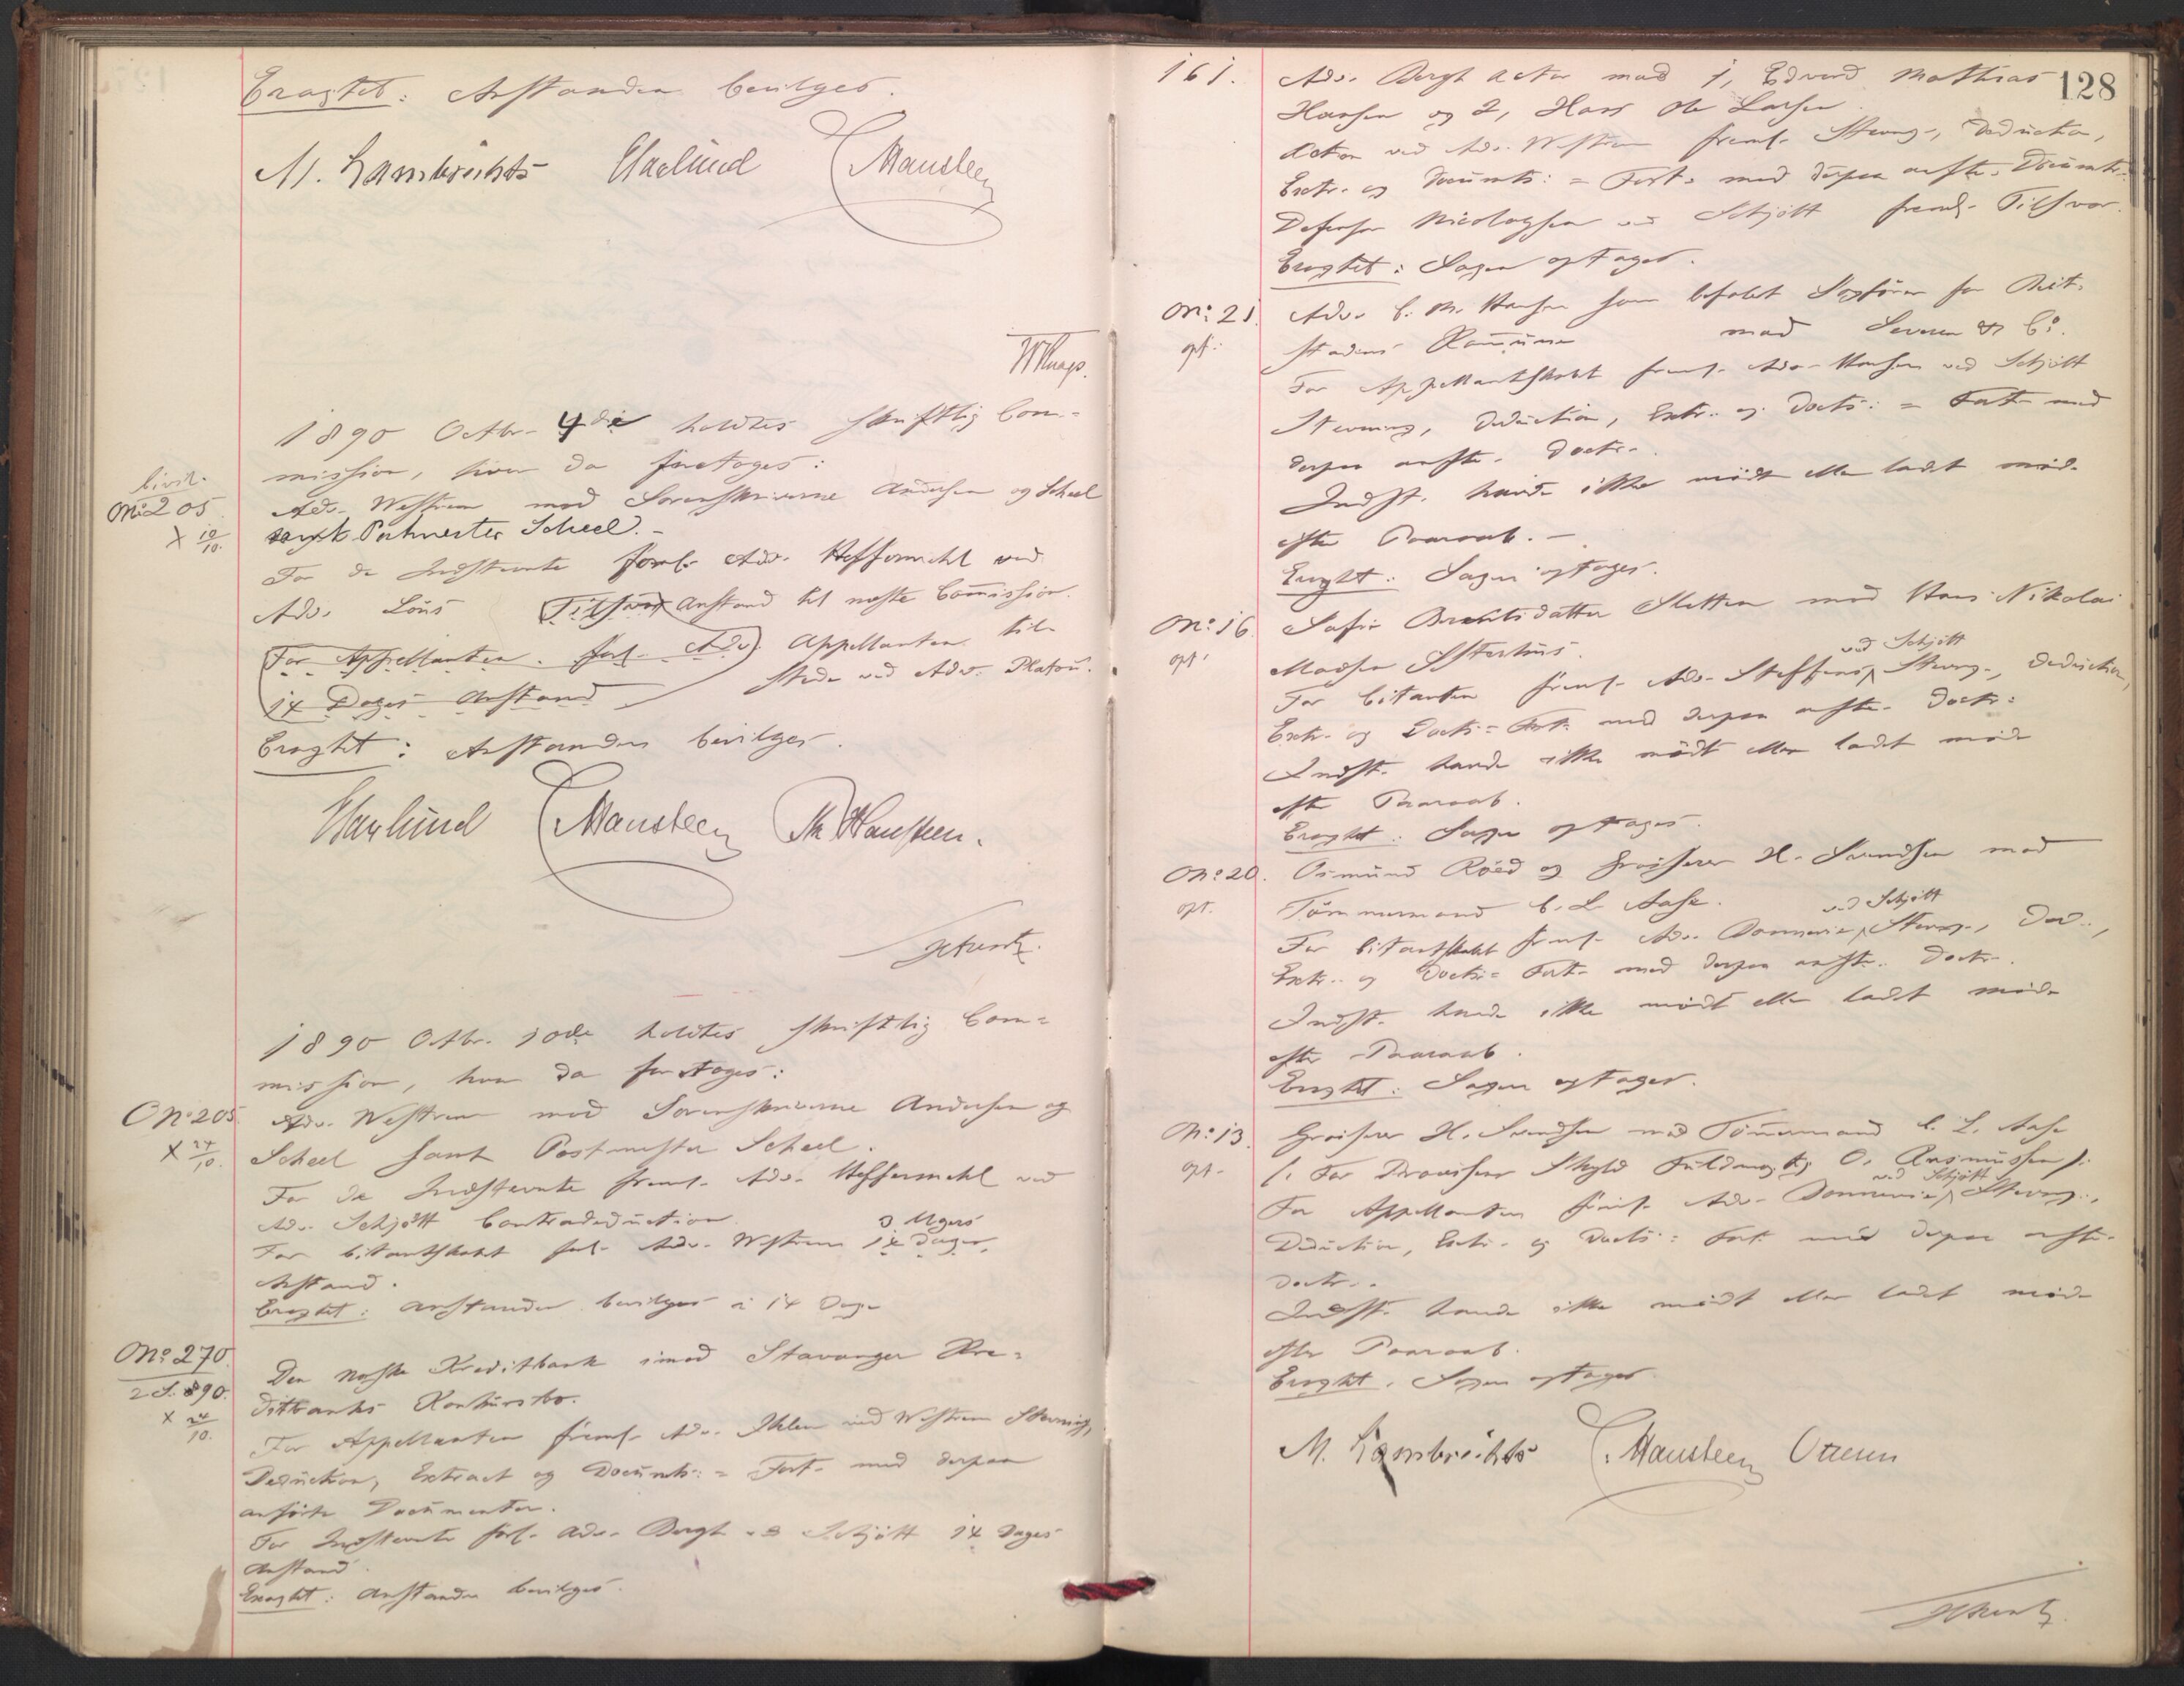 Eragtet: Anstanden bevilges.
M. Lambrechts Haslund C. Hansteen
1890 Octbr. 4de holdtes skriftlig Com-
mission, hvor da foretoges:
Civil.
No 205
X 10/10.
Adv. Westrum mod Sorenskriverne Andersen og Scheel
samt Postmester Scheel. -
For de Indstevnte forl. Adv. Heffermehl ved
Adv. Lous Tilsvar Anstand til næste Commission.
For Appellanten forl. Adv. Appellanten til-
14 Dages Anstand stede ved Adv. Platou.
Eragtet: Anstanden bevilges.
Haslund C. Hansteen Hansteen.
1890 Octbr. 10de holdtes skriftlig Com-
mission, hvor da foretoges:
No 205.
X 24/10.
Adv. Westrum mod Sorenskriverne Andersen og
Scheel samt Postmester Scheel.
For de Indstevnte freml. Adv. Heffermehl ved
Adv. Schjött Contradeduction.
For Citantskabet forl. Adv. Westrum 14 Dages 3 Ugers
Anstand.
Eragtet: Anstanden bevilges i 14 Dage
No 270.
2 S. 890.
X 24/10.
Den norske Kreditbank imod Stavanger Kre-
ditbanks Konkursbo.
For Appellanten freml. Adv. Ihlen ved Westrum Stevning,
Deduction, Extract og Documts: = Fort. med derpaa
anførte Documenter.
For Indstevnte forl. Adv. Bergh ved Schjött 14 Dages
Anstand.
Eragtet: Anstanden bevilges.
128
161.
Adv. Bergh Actor mod 1, Edvard Mathias
Hansen og 2, Hans Ole Larsen.
Actor ved Adv. Westrum freml. Stevng., Deduction,
Extr. og Documts: = Fort. med derpaa anfte. Documtr.
Defensor Nicolaysen ved Schjött freml. Tilsvar.
Eragtet: Sagen optages.
No 21.
opt:
Adv. C. M. Hansen som befalet Sagfører for
Stadens Kommune mod & Co.
For Appellantskabet freml. Adv. Hansen ved Schjött
Stevning, Deduction, Extr. og Docts: = Fort. med
derpaa anfte. Doctr.
Indst. havde ikke mödt eller ladet möde
efter Paaraab. -
Eragtet: Sagen optages.
No 16.
opt:
Sofie Sletten mod Hans Nikolai
Madsen
For Citanten freml. Adv. Steffens ved Schjött Stevng., Deduction,
Extr. og Docts: = Fort. med derpaa anfte. Doctr:
Indst. havde ikke mödt eller ladet möde
efter Paaraab.
Eragtet: Sagen optages.
No 20.
opt.
Osmund Röed og Grosserer H. Svendsen mod
Tömmermand C. L. Aase.
For Citantskabet freml. Adv. ved Schjött Stevng., Ded.,
Extr. og Docts: = Fort. med derpaa anfte. Doctr.
Indst. havde ikke mödt eller ladet möde
efter Paaraab.
Eragtet: Sagen optages.
No 13.
opt.
Grosserer H. Svendsen mod Tömmermand C. L. Aase
(: For O. Rasmussen :)
For Appellanten freml. Adv. ved Schjött Stevng.,
Deduction, Extr. og Docts: Fort. med derpaa anfte.
Doctr..
Indst. havde ikke mödt eller ladt möde
efter Paaraab.
Eragtet: Sagen optages.
M. Lambrechts C. Hansteen